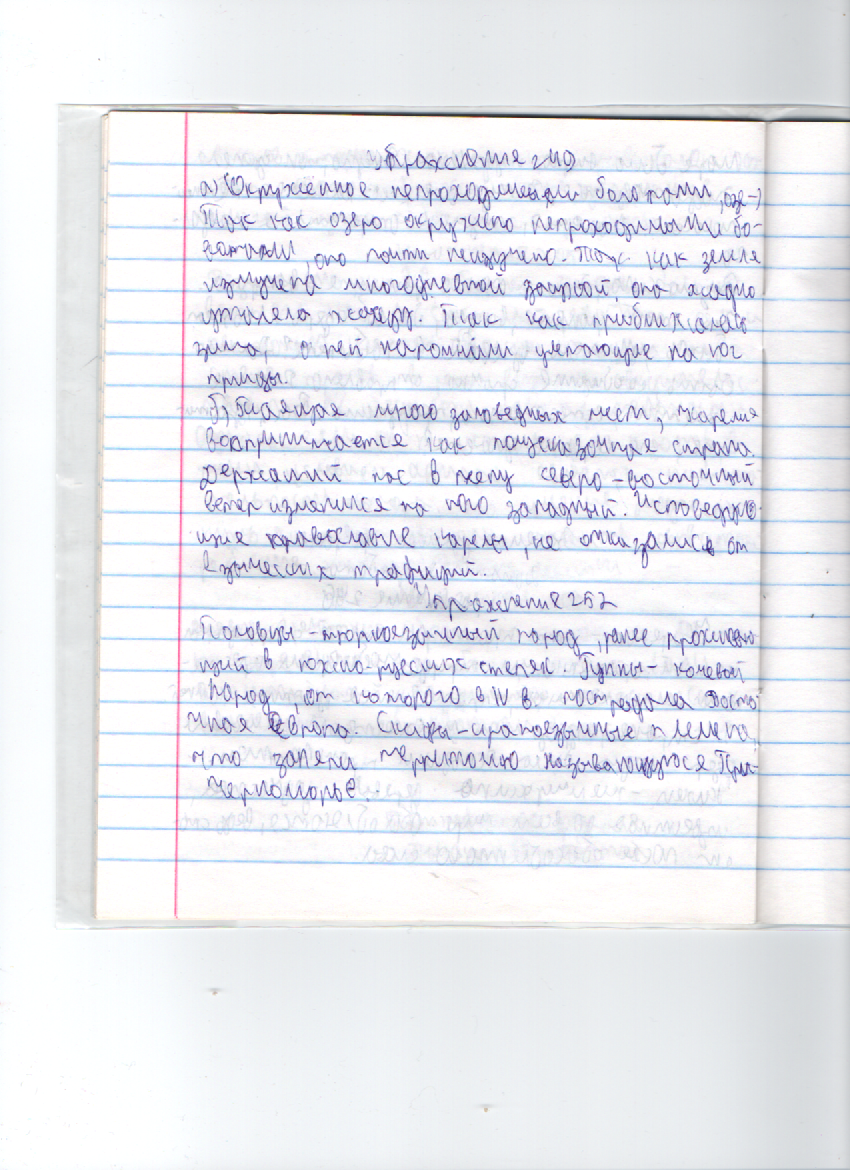 Упражнение 249
а) Окружённое непроходимыми болотами, озе-
Так как озеро окружено непроходимыми бо-
лотами, оно почти неизучено. Так как земля
измучена многодневной засухой, она жадно
утоляла жажду. Так как приближалась
зима, о ней напомнили улетающие на юг
птицы.
б) много заповедных мест, Карелия
воспринимается как полусказочная страна.
Держащий нас в плену северо-восточный
ветер изменился на юго западный. Исповедую-
щие православие карелы, не отказались от
языческих традиций.
Упражнение 252
Половцы - тюркоязычный народ, ранее прожива
щий в южно-русских степях. Гунны - кочевой
народ, от которого в IV в. пострадала Восто
чная Европа. Скифы - ираноязычные племена,
что заняли территорию называющуюся При-
черноморье.